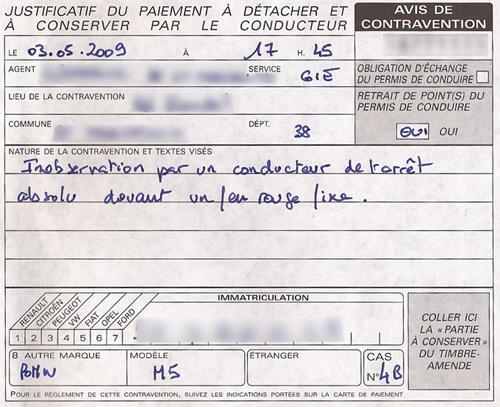 JUSTIFICATIF DU PAIEMENT À DÉTACHER ET
À CONSERVER PAR LE CONDUCTEUR
AVIS DE
CONTRAVENTION
LE 03.05.2009 À 17 H. 45
AGENT
SERVICE GIE
OBLIGATION D'ÉCHANGE
DU PERMIS DE CONDUIRE
LIEU DE LA CONTRAVENTION
RETRAIT DE POINT(S) DU
PERMIS DE CONDUIRE
COMMUNE
DÉPT. 38
OUI OUI
NATURE DE LA CONTRAVENTION ET TEXTES VISÉS
Inobservation par un conducteur de l'arrêt
absolu devant un feu rouge fixe.
IMMATRICULATION
RENAULT CITROËN PEUGEOT VW FIAT OPEL FORD
1 2 3 4 5 6 7
COLLER ICI
LA « PARTIE
À CONSERVER »
DU TIMBRE-
AMENDE
8 AUTRE MARQUE MODÈLE ÉTRANGER CAS
M5 N° 4B
POUR LE RÈGLEMENT DE CETTE CONTRAVENTION, SUIVEZ LES INDICATIONS PORTÉES SUR LA CARTE DE PAIEMENT